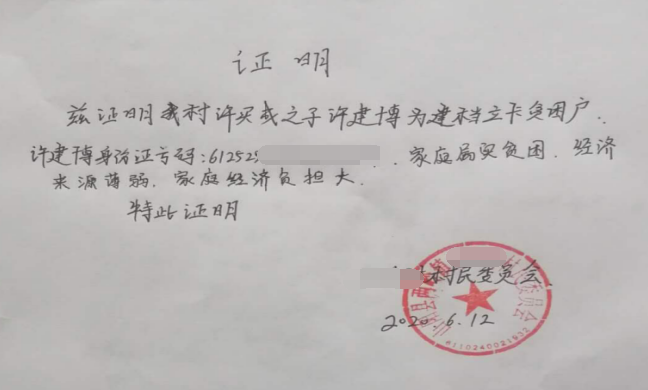 证 明
兹证明我村许买成之子许建博为建档立卡贫困户.
许建博身份证号码:612525 家庭属实贫困.经济
来源薄弱.家庭经济负担大.
特此证明
村民委员会
2020.6.12
6110240021932